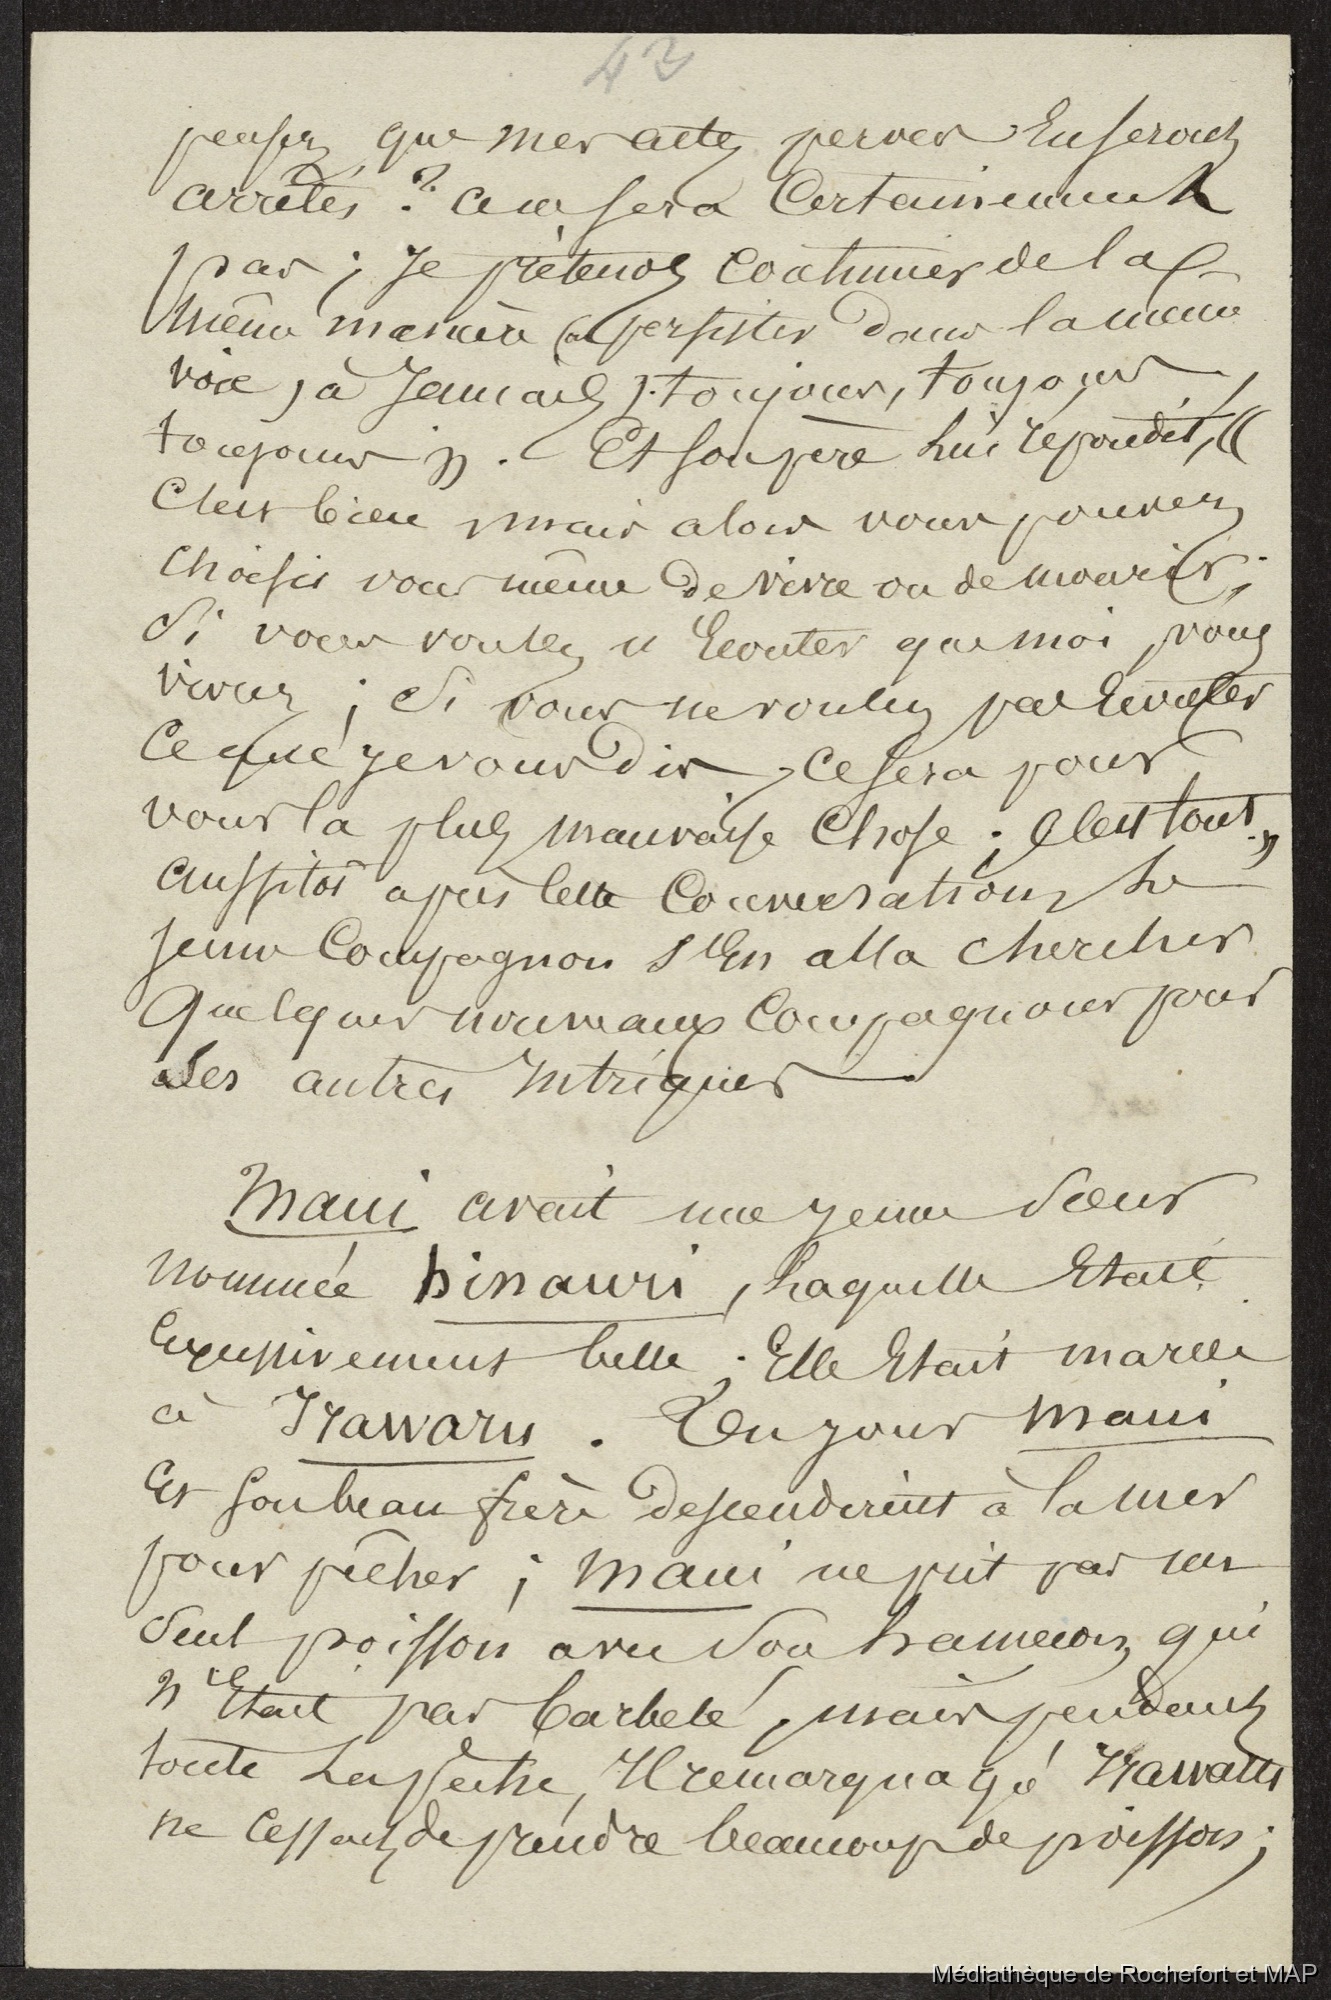 43
pensez que mes actes pervers En seront
arrêtés ? ce ne sera Certainement
pas ; Je prétends continuer de la
même manière (et persister dans la même
voie ) à Jamais ; toujours, toujours,
toujours ». Et son père lui répondit, «
C'est bien, mais alors vous pouvez
choisir vous même de vivre ou de mourir ;
Si vous voulez n'Ecouter que moi, vous
vivrez ; Si vous ne voulez pas Ecouter
Ce que je vous dis, ce sera pour
vous la plus mauvaise Chose ; C'est tout. »
Aussitôt après cette Conversation, le
jeune Compagnon s'En alla chercher
Quelques nouveaux Compagnons pour
des autres Intrigues.
Maui avait une jeune Sœur
nommée hinauri, Laquelle Etait
Excessivement belle ; Elle Etait mariée
à Irawaru. Un jour Maui
Et son beau frère descendirent à la mer
pour pêcher ; Maui ne prit pas un
Seul poisson avec Son hameçon, qui
n'Etait pas barbelé, mais pendant
toute La pêche, Il remarqua q' Irawaru
ne cessait de prendre beaucoup de poissons ;
Médiathèque de Rochefort et MAP